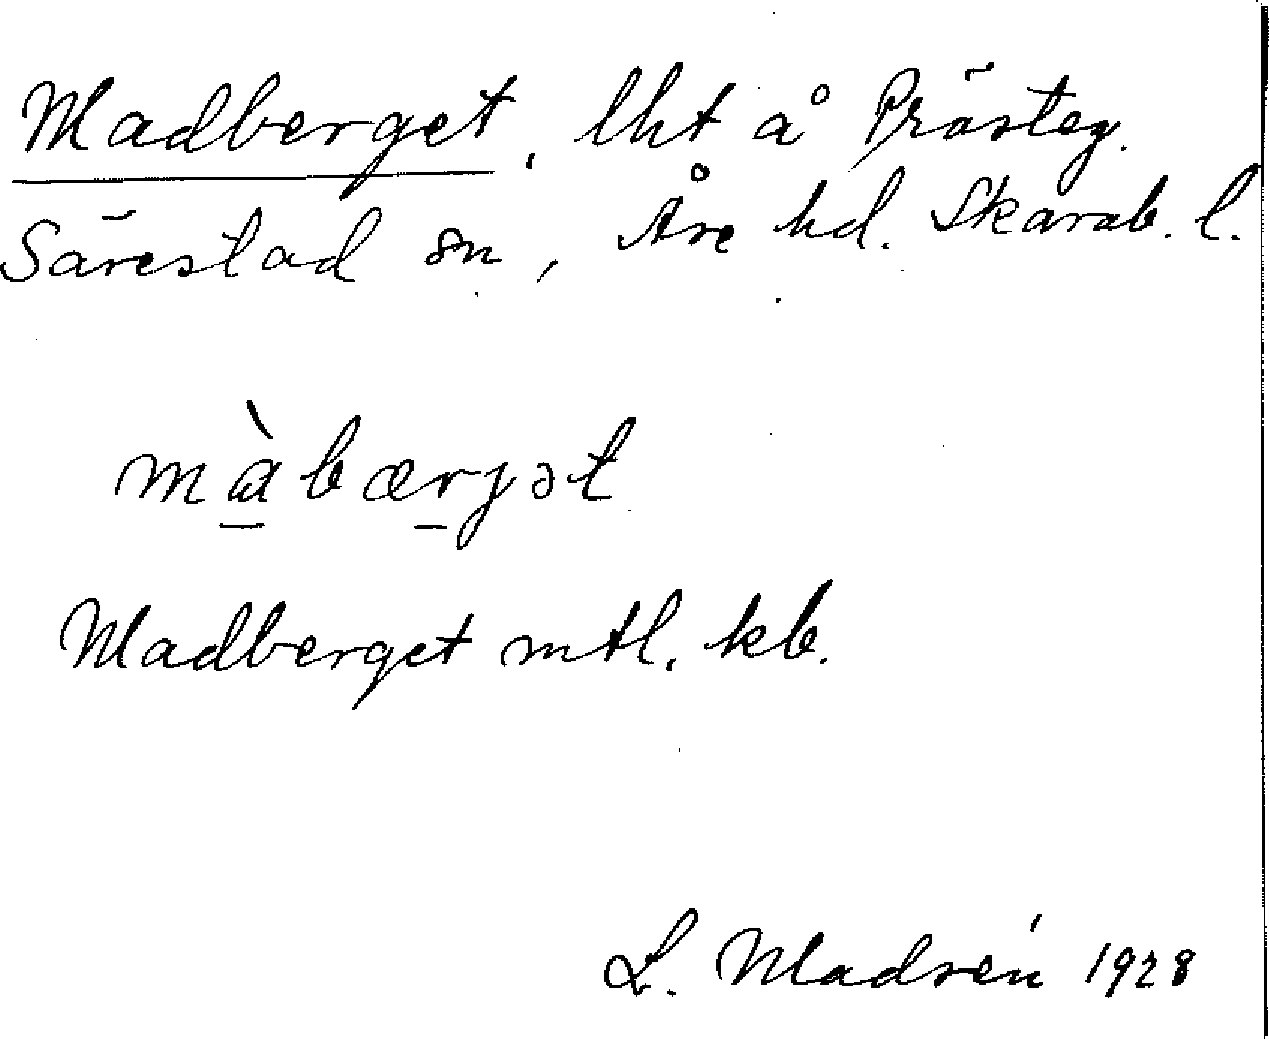 Madberget, lht å Prästeg.
Särestad sn, Åre hd. Skarab. l.
màbærjət
Madberget mtl. kb.
L. Madsén 1928